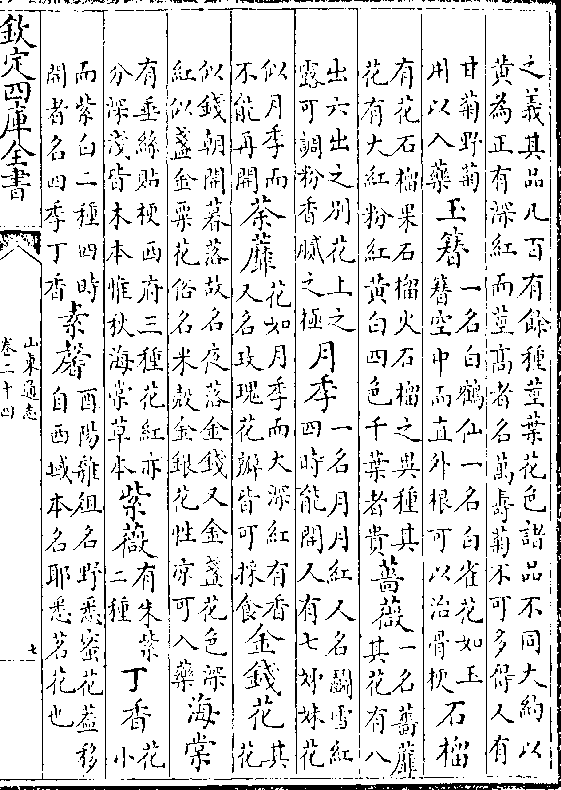 之義其品凡百有餘種莖葉花色諸品不同大約以
黃為正有深紅而莖高者名萬壽菊不可多得人有
甘菊野菊
用以入藥
玉簪
一名白鶴仙一名白雀花如玉
簪空中而直外根可以治骨梗
石榴
有花石榴果石榴火石榴之異種其
花有大紅粉紅黃白四色千葉者貴
薔薇
一名薔蘼
其花有八
出六出之别花上之
露可調粉香膩之極
月季
一名月月紅人名鬬雪紅
四時能開人有七姊妹花
似月季而
不能再開
荼蘼
花如月季而大深紅有香
又名玫瑰花瓣皆可採食
金錢花
其
花
似錢朝開暮落故名夜落金錢又金盞花色深
紅似盞金粟花俗名米殼金銀花性凉可入藥
海棠
有垂絲貼梗西府三種花紅亦
分深淺皆木本惟秋海棠草本
紫薇
有朱紫
二種
丁香
花
小
而紫白二種四時
開者名四季丁香
素馨
酉陽雜俎名野悉蜜花葢移
自西域本名耶悉茗花也
欽定四庫全書
山東通志
卷二十四
七